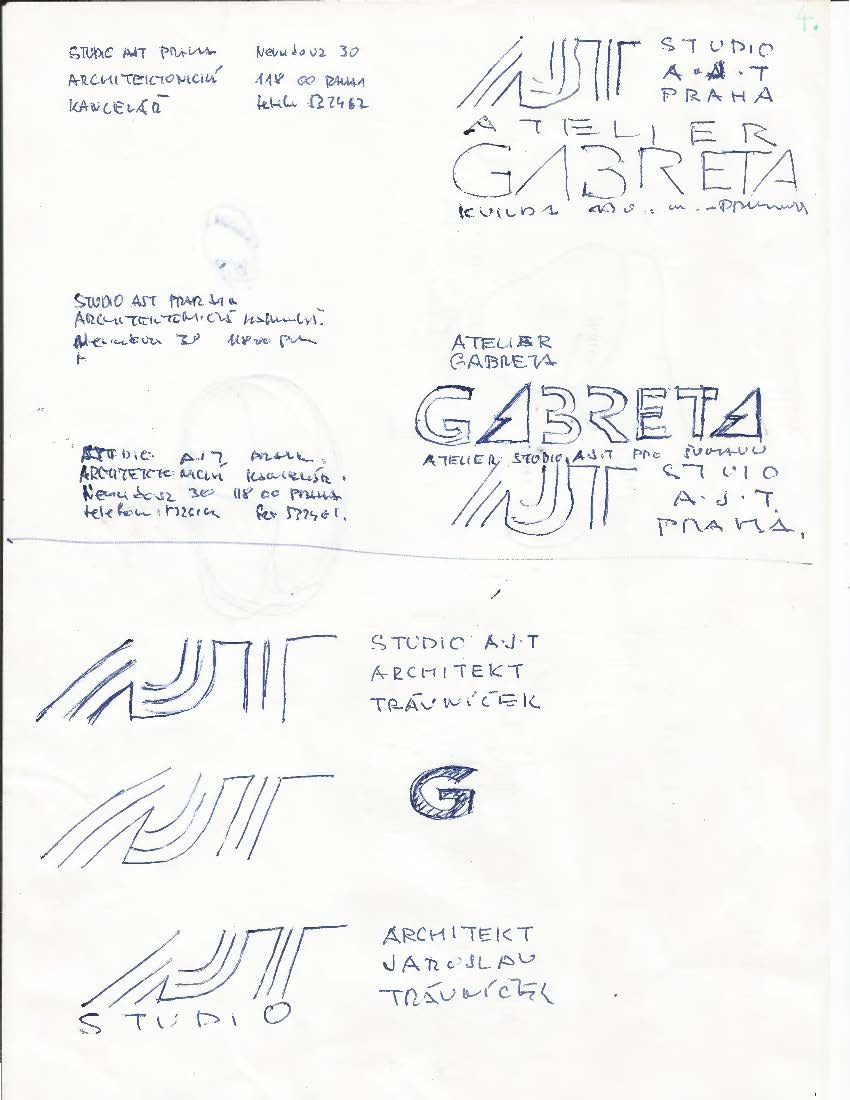 4.
STUDIO AJT PRAHA
ARCHITEKTONICKÁ
KANCELÁŘ
Nerudova 30
118 00 PRAHA
AJT
STUDIO
A·J·T
PRAHA
ATELIER
GABRETA
KVILDA
STUDIO AJT PRAHA
ARCHITEKTONICKÁ
Nerudova 30 118 00
ATELIER
GABRETA
GABRETA
ATELIER STUDIO A.J.T PRO ŠUMAVU
AJT
STUDIO
A·J·T.
PRAHA,
STUDIO A.J.T
ARCHITEKTONICKÁ KANCELÁŘ.
Nerudova 30 118 00 PRAHA
telefon
AJT
STUDIO A·J·T
ARCHITEKT
TRÁVNÍČEK
AJT
G
AJT
STUDIO
ARCHITEKT
JAROSLAV
TRÁVNÍČEK